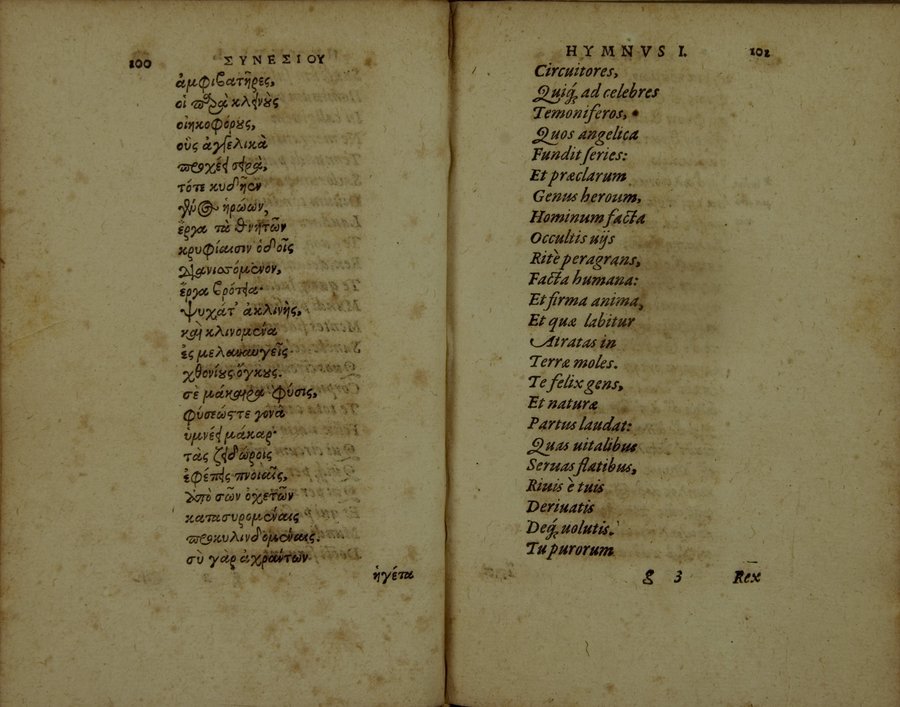 100 ΣΥΝΕΣΙΟΥ
ἀμφιβατῆρες,
οἱ παρὰ κλεινοὺς
οἰηκοφόρους,
οὓς ἀγγελικὰ
προχέει σειρὰ,
τότε κυδῆεν
γένος ἡρώων,
ἔργα τὰ θνητῶν
κρυφίαισιν ὁδοῖς
διανισσόμενον,
ἔργα βρότεια·
ψυχάτ' ἀκλινὴς,
καὶ κλινομένα
ἐς μελαναυγεῖς
χθονίους ὄγκους.
σὲ μάκαιρα φύσις,
φύσεώς τε γονὰ
ὑμνεῖ μάκαρ·
τὰς ζειδώροις
ἐφέπεις πνοιαῖς,
ἀπὸ σῶν ὀχετῶν
κατασυρομέναις
προκυλινδομέναις.
σὺ γὰρ ἀχράντων
ἡγέτα
HYMNVS I. 101
Circuitores,
Quiq́; ad celebres
Temoniferos,
Quos angelica
Fundit series:
Et præclarum
Genus heroum,
Hominum facta
Occultis uijs
Ritè peragrans,
Facta humana:
Et firma anima,
Et quæ labitur
Atratas in
Terræ moles.
Te felix gens,
Et naturæ
Partus laudat:
Quas uitalibus
Seruas flatibus,
Riuis è tuis
Deriuatis
Deq́; uolutis.
Tu purorum
g 3 Rex